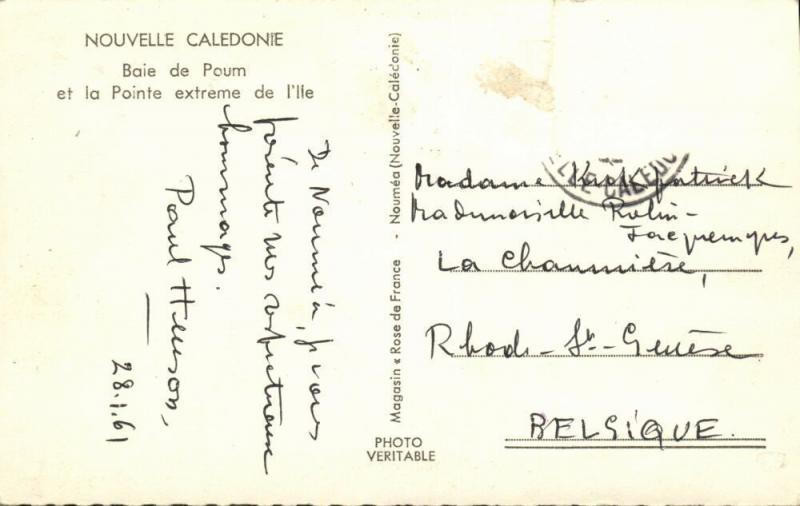 NOUVELLE CALEDONIE
Baie de Poum
et la Pointe extrême de l'Ile
De Nouméa, je vous
présente mes respectueux
hommages.
Paul Heuson,
28.1.61
Magasin « Rose de France - Nouméa (Nouvelle-Calédonie)
PHOTO
VERITABLE
Madame
Mademoiselle Rolin-
Jacquemyns,
La Chaumière,
Rhode-St-Genèse
BELGIQUE.